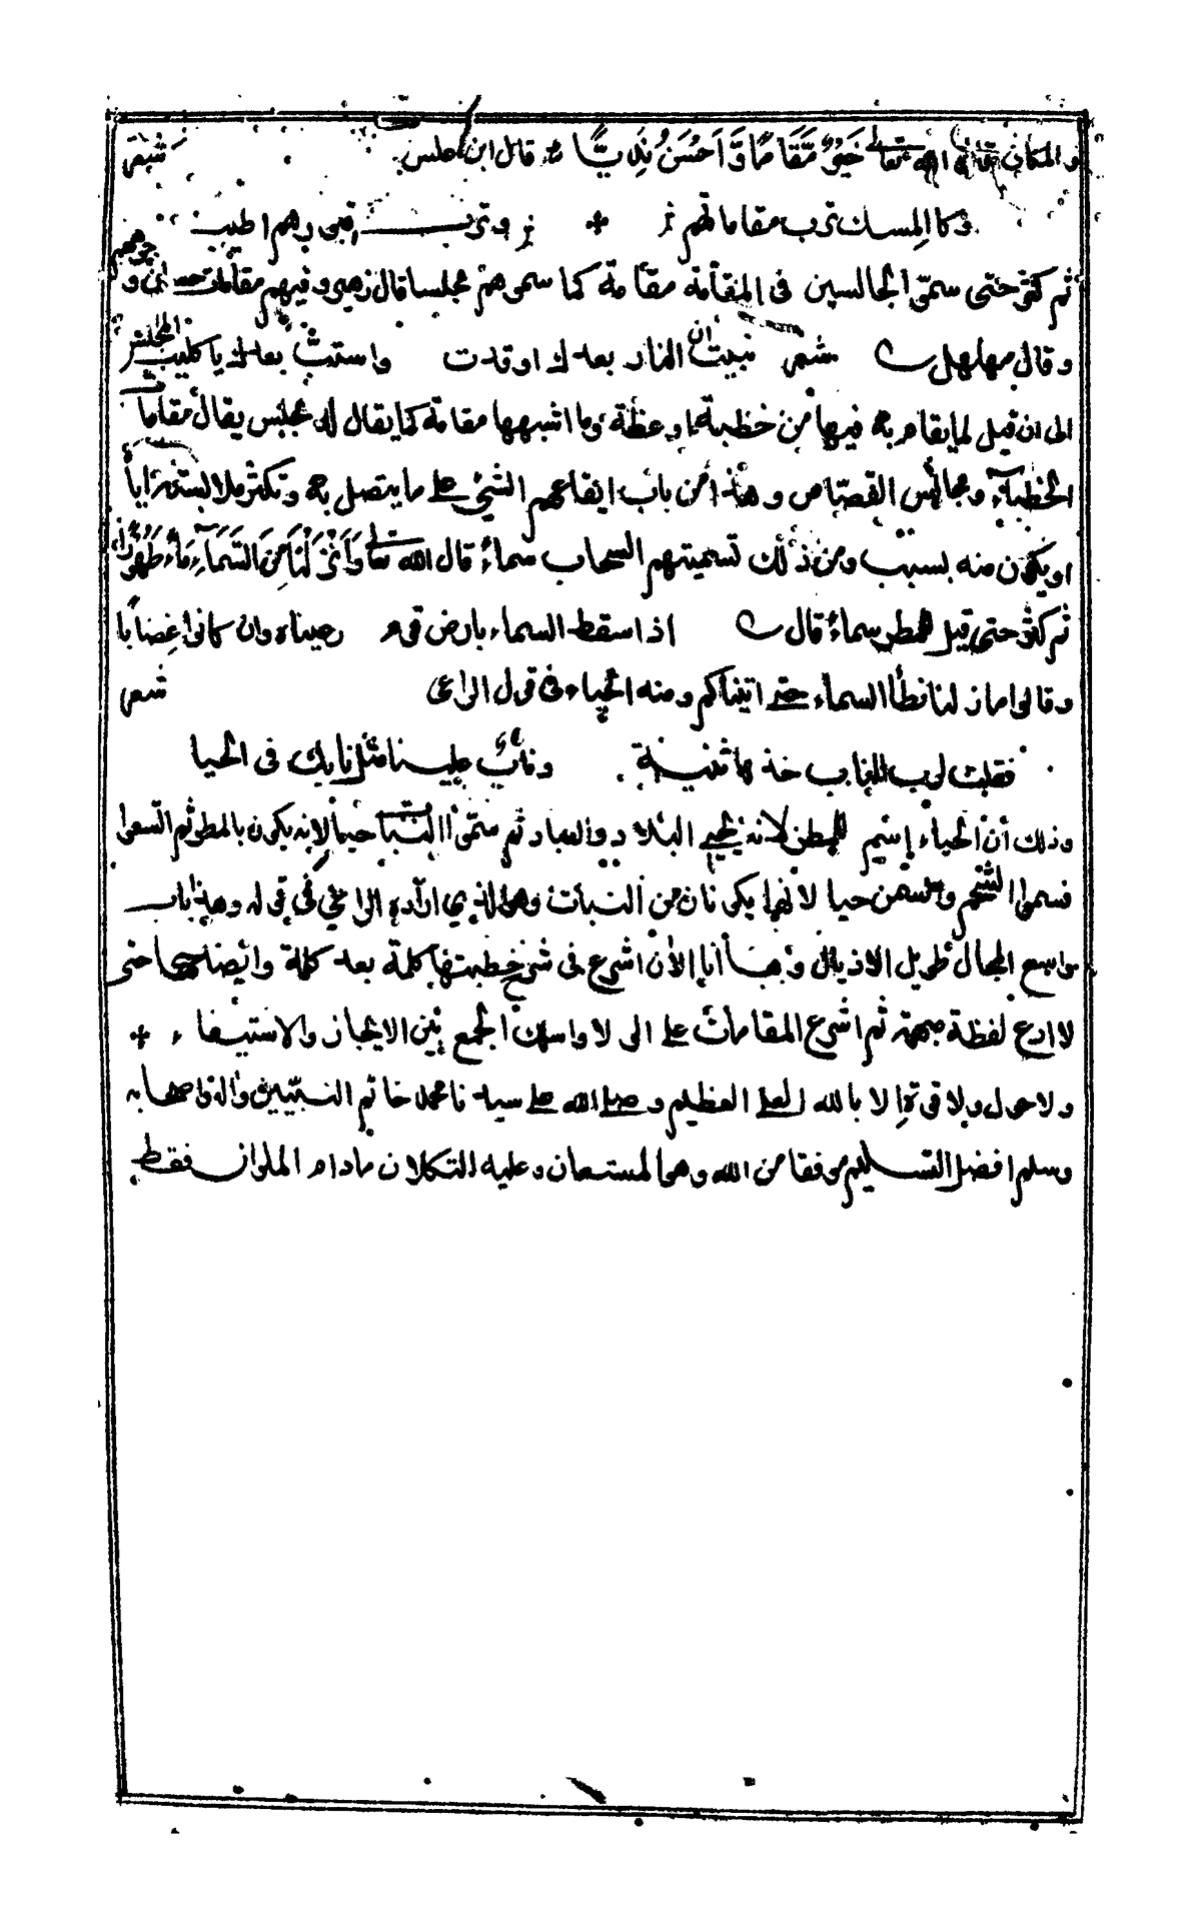 والمكان قال الله تعالى خَيْرٌ مَّقَامًا وَّاَحْسَنُ نَدِيًّا قال ابن علس شعر
وكالمسك ترب مقاماتهم وترب قبورهم اطيب
ثم كثر حتى سمى الجالسين فى المقامة مقامة كما سموهم مجلسا قال زهير وفيهم مقامات حسان وجوههم
وقال مهلهل شعر نبيت ان النار بعدك اوقدت واستب بعدك يا كليب المجلس
الى ان قيل لما يقام به فيها من خطبة او عظة وما اشبهها مقامة كما يقال له مجلس يقال مقامات
الخطباء ومجالس القصاص وهذا من باب ايقاعهم الشئ على ما يتصل به وتكثر ملابسته اياه
او يكون منه بسبب ومن ذلك تسميتهم السحاب سماء قال الله تعالى وَاَنْزَلْنَا مِنَ السَّمَآءِ مَآءً طَهُوْرًا
ثم كثر حتى قيل للمطر سماء قال اذا سقط السماء بارض قوم رعيناه وان كانوا غضابا
وقالوا ما زلنا نطأ السماء حتى اتيناكم ومنه الحياء فى قول الراعى شعر
فقلت لرب الناب خذها ثنية وناب علينا مثل نابك فى الحيا
وذلك أن الحياء إسم للمطر لانه يحيى البلاد والعباد ثم سموا النبات حيا لانه يكون بالمطر ثم اتسعوا
فسموا الشحم والسمن حيا لانهما يكونان من النبات وهو الذى اراده الراعى فى قوله وهذا باب
واسع المجال طويل الاذيال وهأنا الأن اشرع فى شرح خطبتها كلمة بعد كلمة حتى
لا ادع لفظة مبهمة ثم اشرع المقامات على الولا واسلك الجمع بين الايجاز والاستيفاء
ولا حول ولا قوة إلا بالله العلى العظيم وصلى الله على سيدنا محمد خاتم النبيين واله واصحابه
وسلم افضل التسليم موفقا من الله وهو المستعان وعليه التكلان مادام الملوان فقط